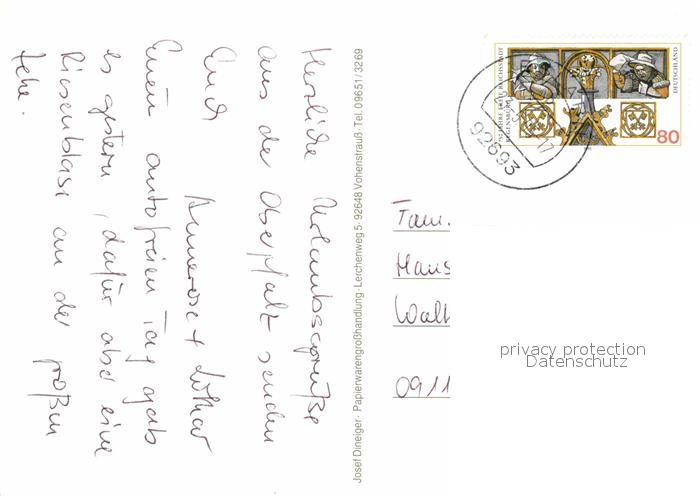 Herzliche Urlaubsgrüße
aus der Oberpfalz senden
Euch
Annerose + Lothar
Einen autofreien Tag gab
es gestern, dafür aber eine
Riesenblase an der großen
Zehe.
Josef Dineiger · Papierwarengroßhandlung · Lerchenweg 5 · 92648 Vohenstrauß · Tel. 09651/3269
REGENSBURG
DEUTSCHLAND
80
92693
17
Fam.
Hans
Walt
0911
privacy protection
Datenschutz